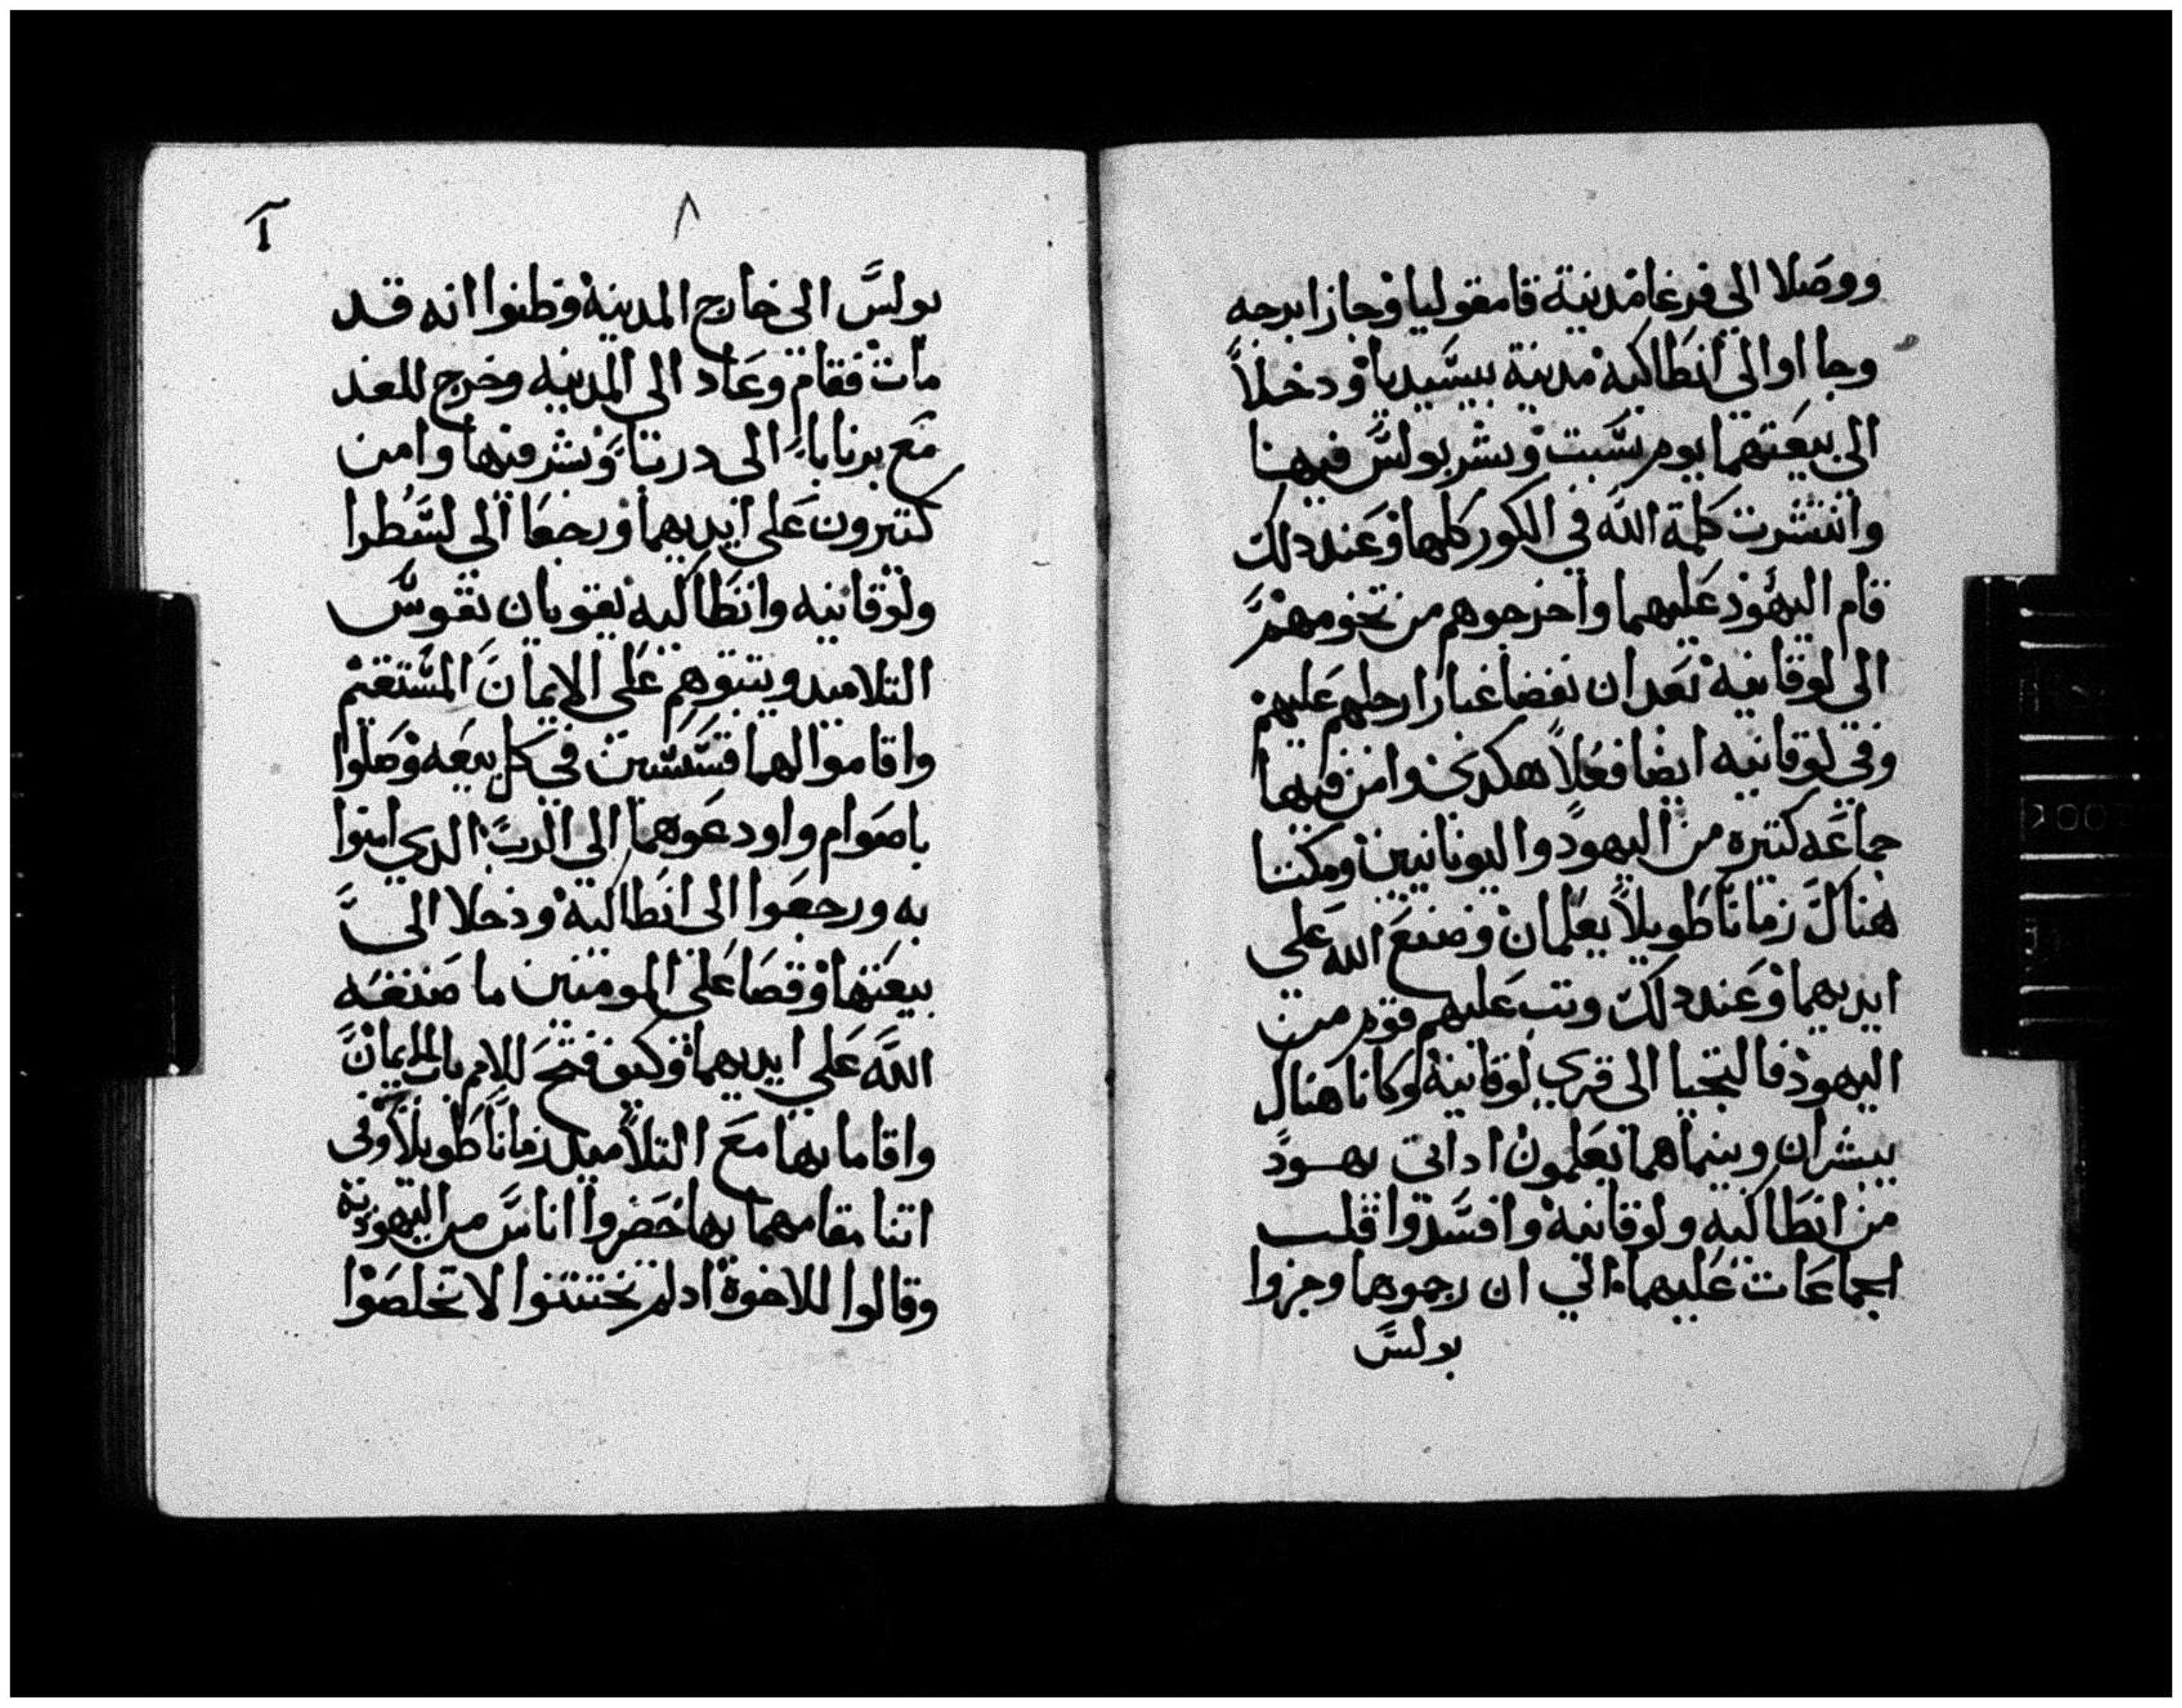 ووصلا الى فرغا مدينة قامفوليا وجازا برجه
وجا اوالى انطاكيه مدينة بيسيديا ودخلا
الى بيعتهما يوم سبت وبشر بولس فيهنا
وانتشرت كلمة الله في الكور كلها وعند دلك
قام اليهود عليهما واخرجوهم من تخومهم
الى لوقانيه بعد ان نفضا غبار ارجلهم عليهم
وفي لوقانيه ايضا فعلا هكدى وامن فيها
جماعه كتيره من اليهود واليونانيين ومكتا
هناك زمانا طويلا يعلمان وصنع الله على
ايديهما وعند دلك وتب عليهم قوم من
اليهود فالتجيا الى قري لوقانيه وكانا هناك
يبشران وبينماهما يعلمون ادااتى يهود
من انطاكيه ولوقانيه وافسدوا قلب
الجماعات عليهما الي ان رجموهما وجروا
بولس
٨
بولس الى خارج المدينه وظنوا انه قد
مات فقام وعاد الى المدينه وخرج للغد
مع برنابا الى درتبا وبشر فيها وامن
كتيرون على ايديهما ورجعا الى لسطرا
ولوقانيه وانطاكيه يقويان نفوس
التلاميد ويتبوهم على الايمان المستقيم
واقاموا لهما قسيسين في كل بيعه وصلوا
باصوام واودعوهما الى الرب الدي امنوا
به ورجعوا الى انطاكيه ودخلا الى
بيعتها وقصا على المومنين ما صنعه
الله على ايديهما وكيف فتح للامم باب الايمان
واقاما بها مع التلاميد زمانا طويلا وفى
اتنا مقامهما بها حضروا اناس من اليهوديه
وقالوا للاخوة ادلم تختتنوا لا تخلصوا